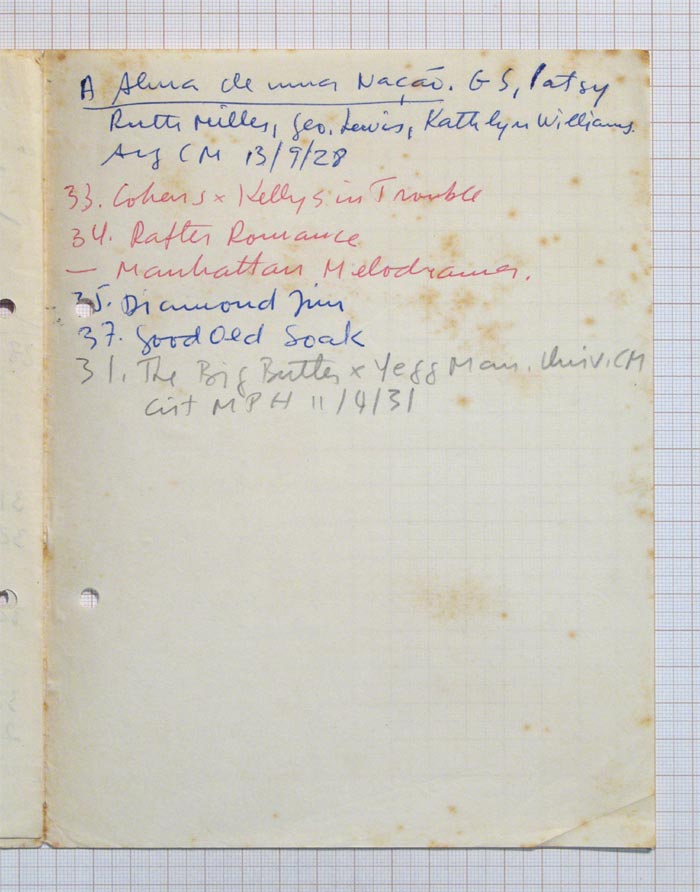 A Alma de uma Nação. G S, Patsy
Ruth Miller, Geo. Lewis, Kathlyn Williams.
Arg CM 13/9/28
33. Cohens x Kellys in Trouble
34. Rafter Romance
— Manhattan Melodrama.
35. Diamond Jim
37. Good Old Soak
31. The Big Butter x Yegg Man. Univ. CM
cist MPH 11/4/31